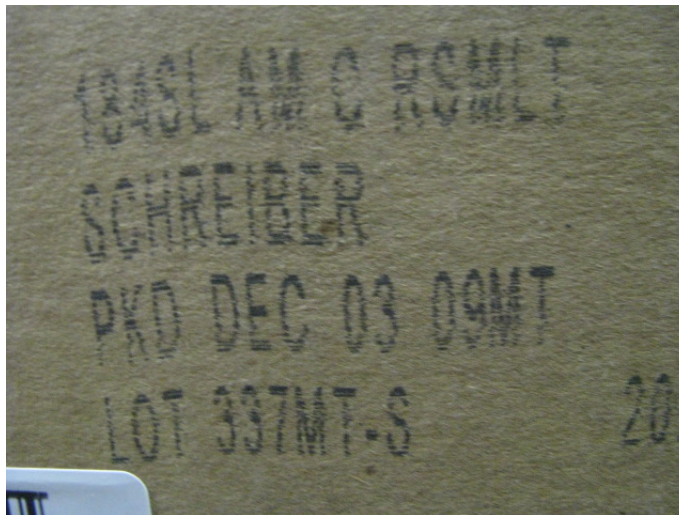 184SL AM C RSMLT
SCHREIBER
PKD DEC 03 09MT
LOT 337MT-S 20